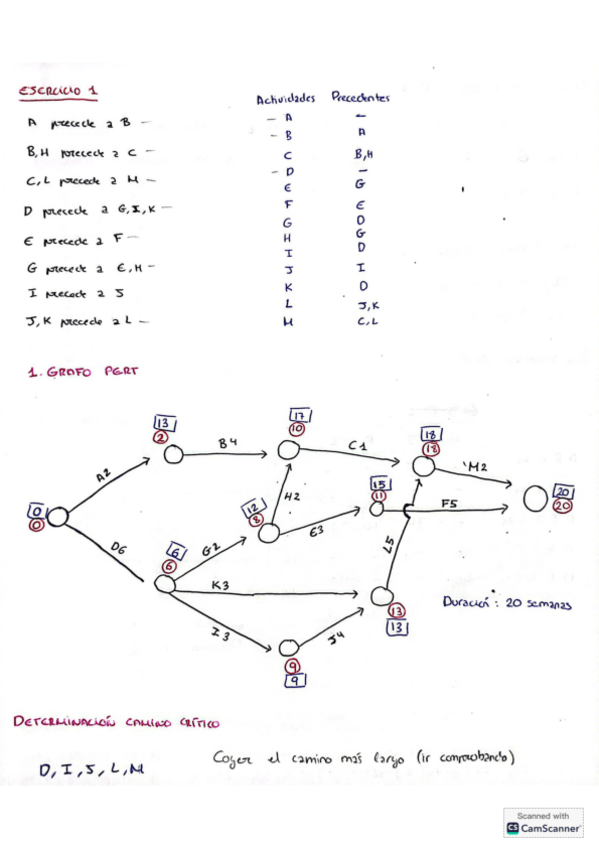 EJERCICIO 1
Actividades Precedentes
A precede a B –
– A –
– B A
B,H precede a C –
C B,H
C,L precede a M –
– D –
E G
D precede a G,I,K –
F E
G D
E precede a F –
H G
I D
G precede a E,H –
J I
I precede a J
K D
L J,K
J,K precede a L –
M C,L
1. GRAFO PERT
13
2
B4
17
10
C1
18
18
M2
A2
0
0
12
8
H2
15
11
F5
20
20
E3
D6
6
6
G2
L5
K3
13
13
Duración: 20 semanas
I3
J4
9
9
DETERMINACIÓN CAMINO CRÍTICO
D, I, J, L, M
Coger el camino más largo (ir comprobando)
Scanned with
CS CamScanner